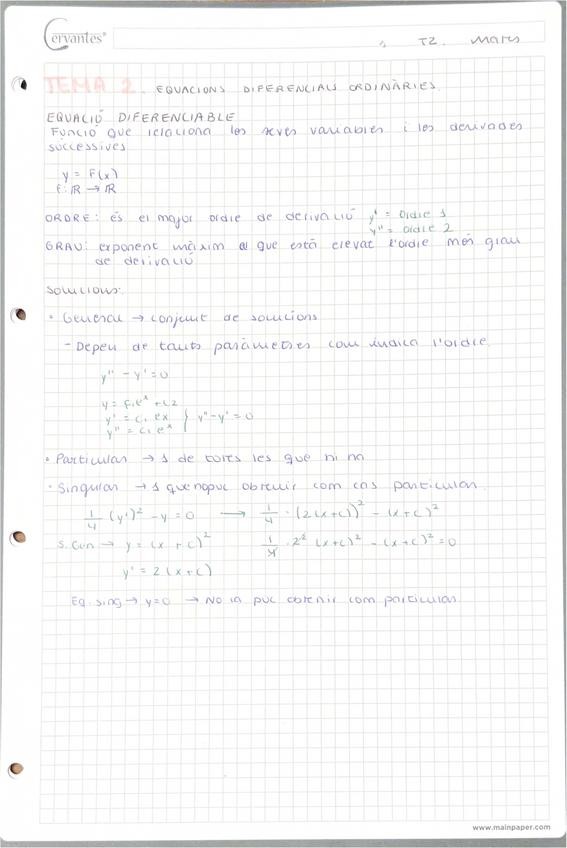 Cervantes®
T2. Març
TEMA 2. EQUACIONS DIFERENCIALS ORDINÀRIES.
EQUACIÓ DIFERENCIABLE
Funció que relaciona les seves variables i les derivades
successives
y = F(x)
f: ℝ → ℝ
ORDRE: és el major ordre de derivació y' = ordre 1
y'' = ordre 2
GRAU: exponent màxim al que està elevat l'ordre més gran
de derivació
Solucions:
• General → conjunt de solucions
- Depen de tants paràmetres com indica l'ordre.
y'' - y' = 0
y = C₁eˣ + C2
y' = C₁ ex } y'' - y' = 0
y'' = C₁ eˣ
• Particular → 1 de totes les que hi ha
• Singular → 1 que no puc obtenir com cas particular.
1/4 (y')² - y = 0 → 1/4 · (2(x+c))² - (x+c)²
S. Gen → y = (x + c)² 1/4 · 2² (x+c)² - (x+c)² = 0
y' = 2(x+c)
Eq. sing → y=0 → No la puc obtenir com particular
www.mainpaper.com